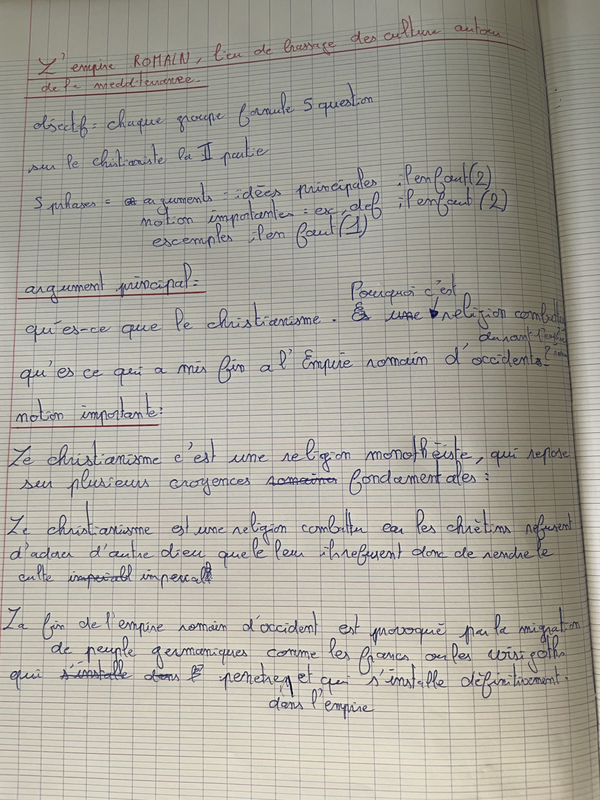 L'empire ROMAIN, lieu de brassage des culture autour
de la mediterranée.
objectif = chaque groupe formule 5 question
sur le chistianiste la II partie
5 phases = arguments - idées principales ; il en faut (2)
notion importantes = ex, def ; il en faut (2)
escemples ; il en faut (1)
argument principal =
Pourquoi c'est
qu'es-ce que le christianisme. une religion combattu
durant l'empire
qu'es ce qui a mis fin a l'Empire romain d'occidents?
notion importante :
Le christianisme c'est une religion monothéiste, qui repose
sur plusieurs croyences romaine fondamentales :
Le christianisme est une religion combattu car les chrétins refusent
d'adorer d'autre dieu que le leur ils refusent donc de rendre le
culte imperiall imperial
La fin de l'empire romain d'occident est provoqué par la migration
de peuple germaniques comme les francs ou les wisigoths
qui s'installe dans penetrent et qui s'installe définitivement.
dans l'empire